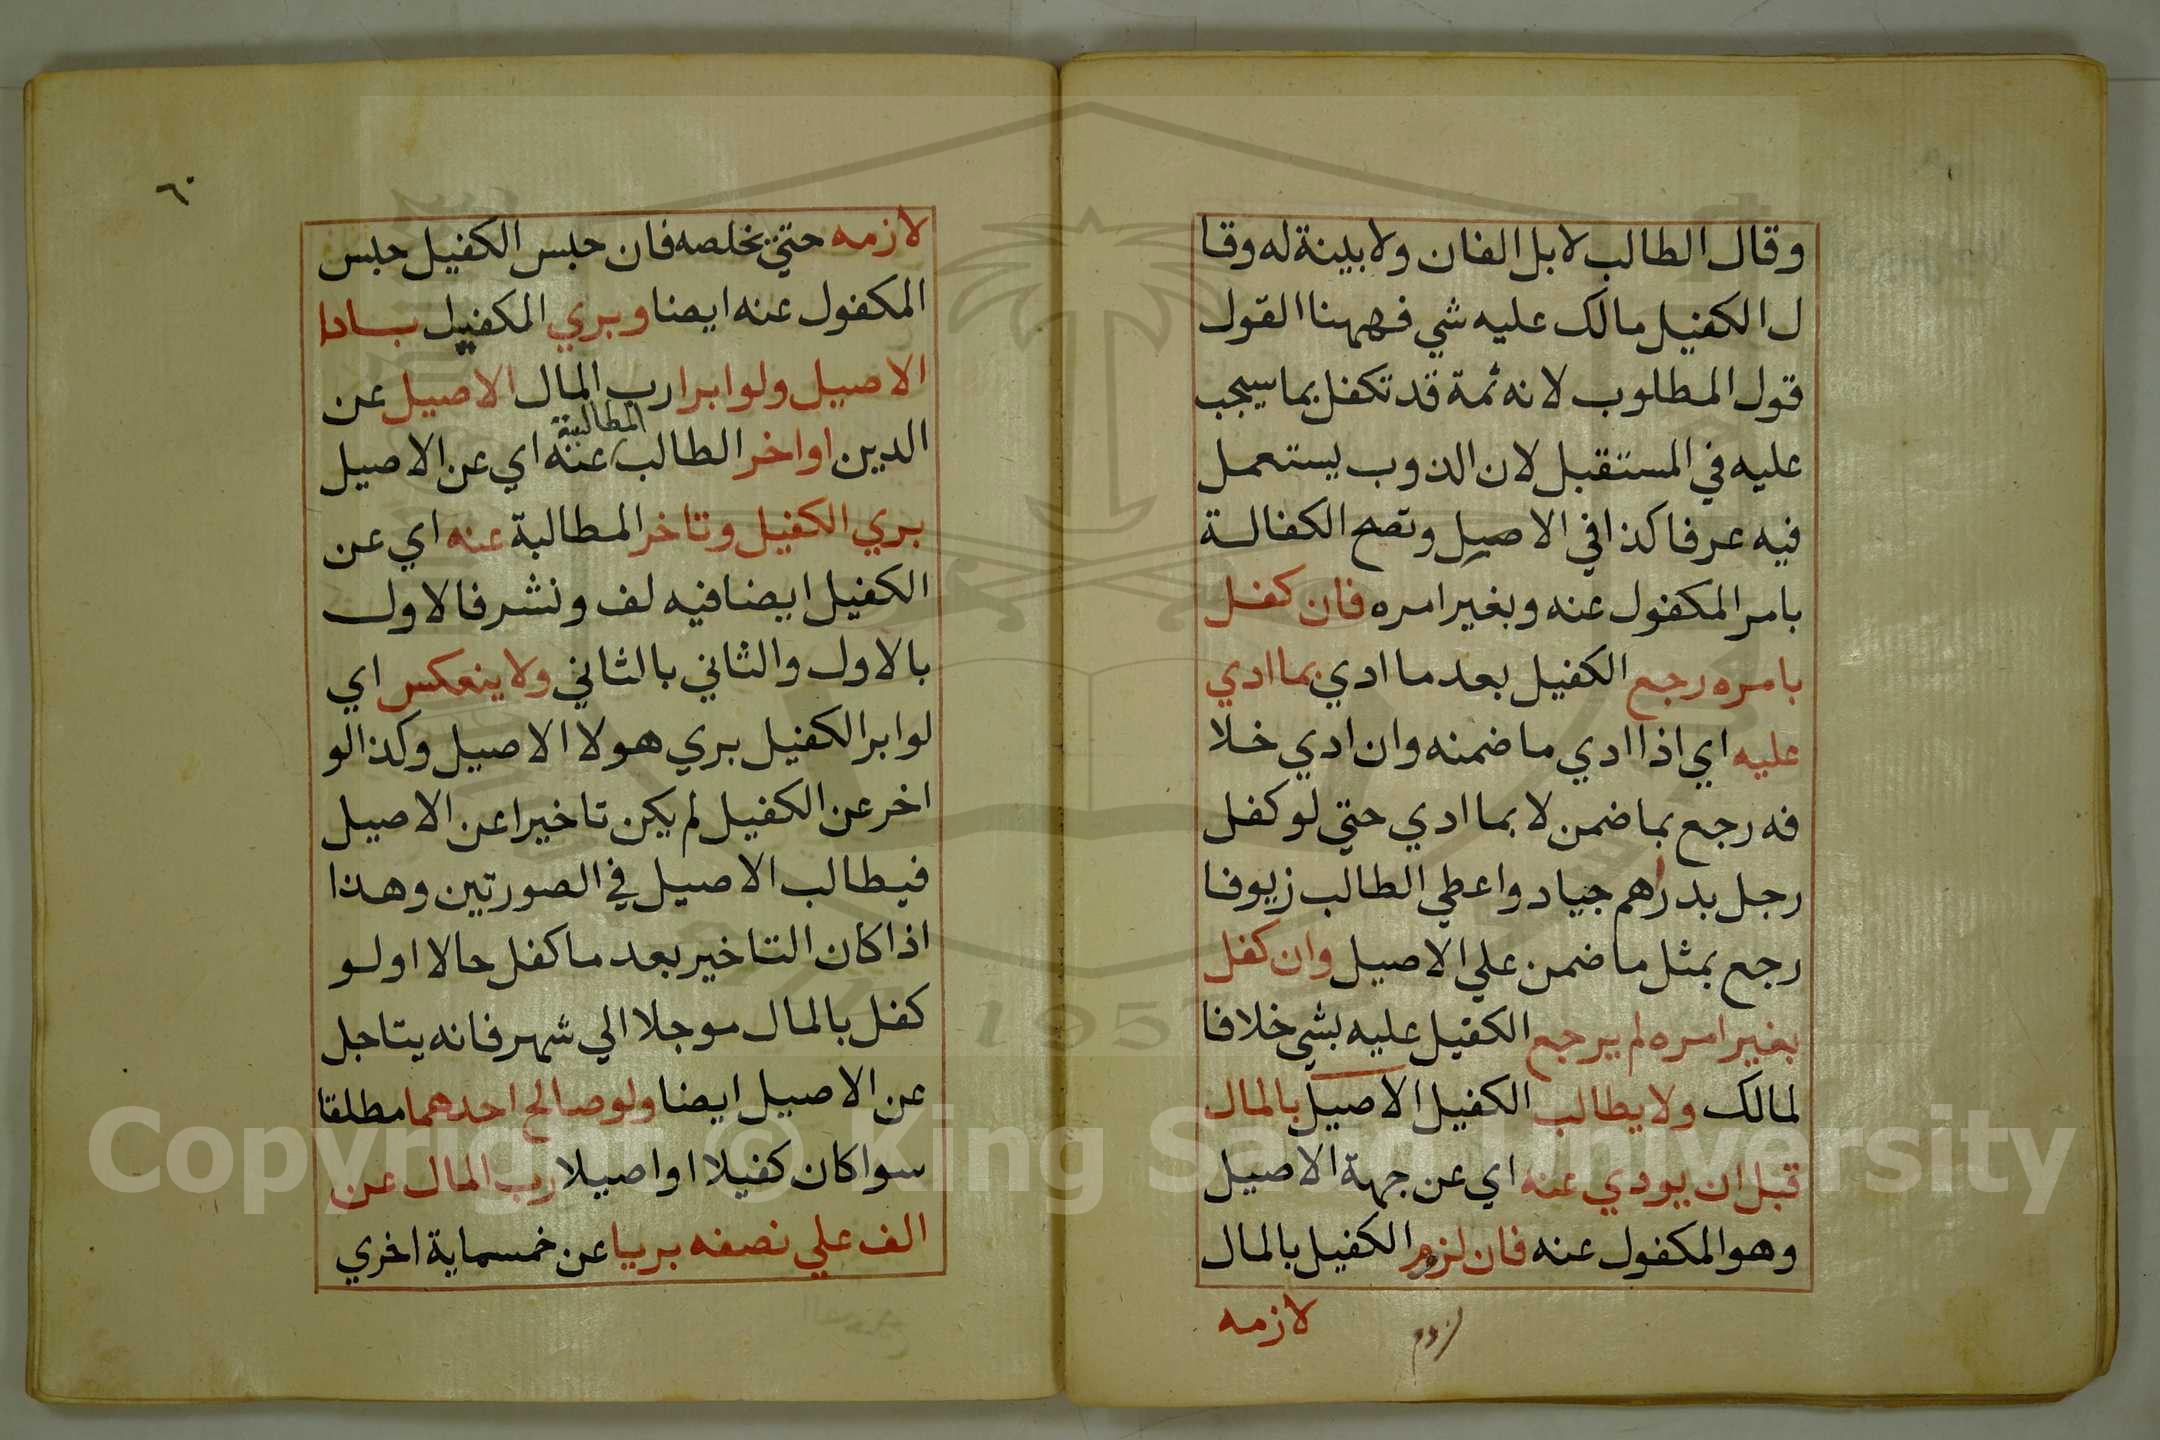 وقال الطالب لا بل الفان ولا بينة له وقا
ل الكفيل مالك عليه شي فههنا القول
قول المطلوب لانه ثمة قد تكفل بما سيجب
عليه في المستقبل لان الذوب يستعمل
فيه عرفا كذا في الاصيل وتصح الكفالة
بامر المكفول عنه وبغير امره فان كفل
بامره رجع الكفيل بعد ما ادي بما ادي
عليه اي اذا ادي ما ضمنه وان ادي خلا
فه رجع بما ضمن لا بما ادي حتي لو كفل
رجل بدراهم جياد واعطي الطالب زيوفا
رجع بمثل ما ضمن علي الاصيل وان كفل
بغير امره لم يرجع الكفيل عليه بشي خلافا
لمالك ولا يطالب الكفيل الاصيل بالمال
قبل ان يودي عنه اي عن جهة الاصيل
وهو المكفول عنه فان لزم الكفيل بالمال
لازمه
لزوم
٦٠
لازمه حتي يخلصه فان حبس الكفيل حبس
المكفول عنه ايضا وبري الكفيل بادا
الاصيل ولو ابرا رب المال الاصيل عن
المطالبة
الدين او اخر الطالب عنه اي عن الاصيل
بري الكفيل وتاخر المطالبة عنه اي عن
الكفيل ايضا فيه لف ونشر فالاول
بالاول والثاني بالثاني ولا ينعكس اي
لو ابرا الكفيل بري هو لا الاصيل وكذا لو
اخر عن الكفيل لم يكن تاخيرا عن الاصيل
فيطالب الاصيل في الصورتين وهذا
اذا كان التاخير بعد ما كفل حالا او لو
كفل بالمال موجلا الي شهر فانه يتاجل
عن الاصيل ايضا ولو صالح احدهما مطلقا
سوا كان كفيلا او اصيلا رب المال عن
الف علي نصفه بريا عن خمسماية اخري
1957
Copyright © King Saud University